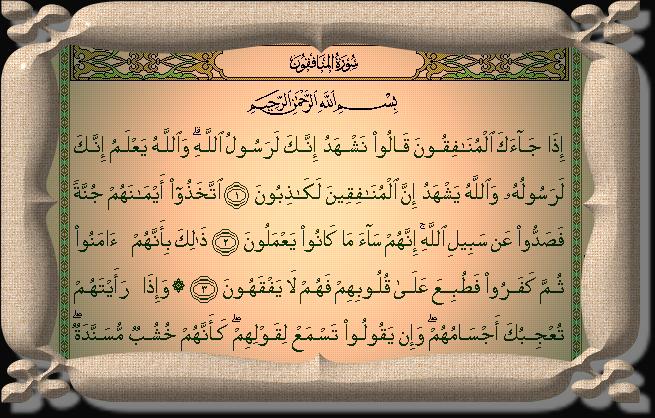 سُورَةُ المُنَافِقُون
بِسْمِ اللَّهِ الرَّحْمَٰنِ الرَّحِيمِ
إِذَا جَآءَكَ ٱلْمُنَٰفِقُونَ قَالُوا۟ نَشْهَدُ إِنَّكَ لَرَسُولُ ٱللَّهِ ۗ وَٱللَّهُ يَعْلَمُ إِنَّكَ
لَرَسُولُهُۥ وَٱللَّهُ يَشْهَدُ إِنَّ ٱلْمُنَٰفِقِينَ لَكَٰذِبُونَ ١ ٱتَّخَذُوٓا۟ أَيْمَٰنَهُمْ جُنَّةً
فَصَدُّوا۟ عَن سَبِيلِ ٱللَّهِ ۚ إِنَّهُمْ سَآءَ مَا كَانُوا۟ يَعْمَلُونَ ٢ ذَٰلِكَ بِأَنَّهُمْ ءَامَنُوا۟
ثُمَّ كَفَرُوا۟ فَطُبِعَ عَلَىٰ قُلُوبِهِمْ فَهُمْ لَا يَفْقَهُونَ ٣ ۞ وَإِذَا رَأَيْتَهُمْ
تُعْجِبُكَ أَجْسَامُهُمْ ۖ وَإِن يَقُولُوا۟ تَسْمَعْ لِقَوْلِهِمْ ۖ كَأَنَّهُمْ خُشُبٌ مُّسَنَّدَةٌ ۖ